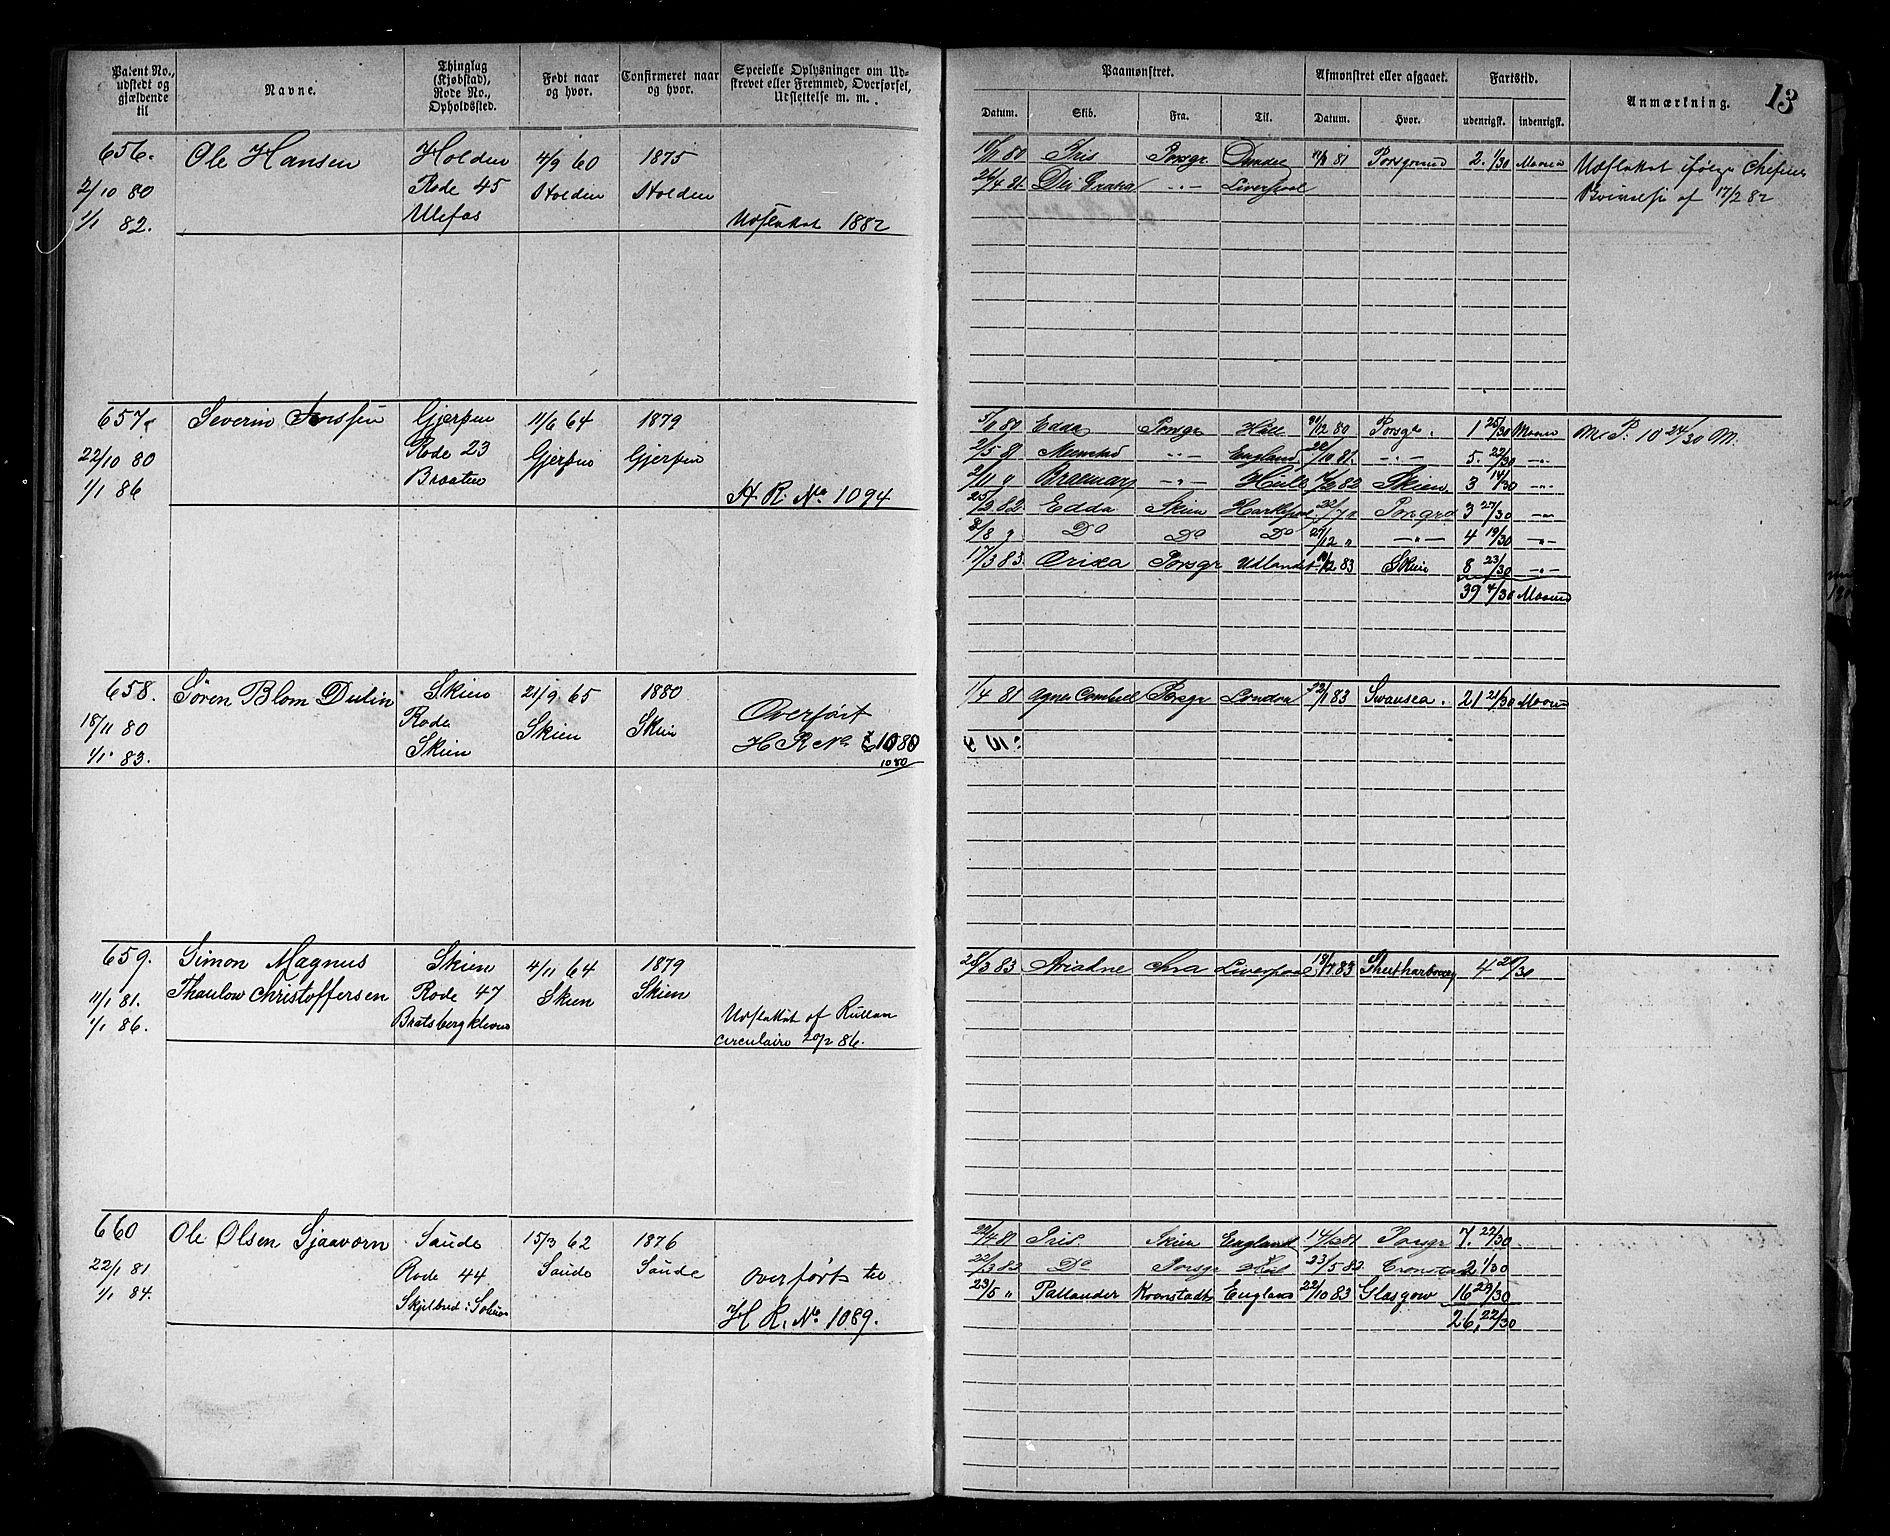 Patent No., udstedt og gjældende til
Navne.
Thinglag (Kjøbstad), Rode No., Opholdssted.
Født naar og hvor.
Confirmeret naar og hvor.
Specielle Oplysninger om Udskrevet eller Fremmed, Overførsel, Udslettelse m. m.
Paamønstret.
Afmønstret eller afgaaet.
Fartstid.
Anmærkning.
13
Datum.
Skib.
Fra.
Til.
Datum.
Hvor.
udenrigsk.
indenrigsk.
656. Ole Hansen Holden 4/9 60 1875
2/10 80 Rode 45 Holden Holden
1/1 82. Ulefos Udslettet 1882
80 Iris Porsgr Dundee 81 Porsgrund 2. 1/30 Maaned Udslettet ifølge Chefens
26/4 81. Dei Gratia -"- Liverpool
af 17/2 82
657. Severin Jenssen Gjerpen 11/6 64 1879
22/10 80 Rode 23 Gjerpen Gjerpen
1/1 86 Braaten H. R. No 1094
80 Edda Porsgr Hull /12 80 Porsgr. 1 25/30 Maaned M. P: 10 24/30 M.
2/5 81 -"- England /10 81. -"- 5. 22/30 -"-
2/11 " Braemar -"- Hull 82 Skien 3 14/30 -"-
25/3 82 Edda Skien /7 " Porsgr 3 27/30 -"-
/8 " Do Do Do /12 " -"- 4 19/30 -"-
17/3 83. Orixa Porsgr Udlandet /12 83 Skien 8 23/30 -"-
39 4/30 Maaned
658. Søren Blom Dulin Skien 21/9 65 1880
18/11 80 Rode Skien Skien Overført
1/1 83. Skien H R No 1080
1080
1/4 81 Porsgr London 22/1 83 Swansea. 21 21/30 Maaned
659. Simon Magnus Skien 4/11 64 1879
11/1 81. Thaulow Christoffersen Rode 47 Skien Skien
1/1 86. Bratsbergkleven Udslettet af Rullen
circulaire 20/2 86.
/3 83 Ariadne Liverpool 18/7 83 4 /30
660 Ole Olsen Sjaavorn Saude 15/3 62 1876
22/1 81 Rode 44 Saude Saude Overført til
1/1 84. Skjelbred i H R. No 1089.
22/4 81 Iris Skien England 14/12 81 Porsgr 7. 22/30
22/3 82 Do Porsgr Hull 23/5 82 Cronstad 2 1/30
23/5 " Pallander Kronstadt England 22/10 83 Glasgow 16 29/30
26, 22/30